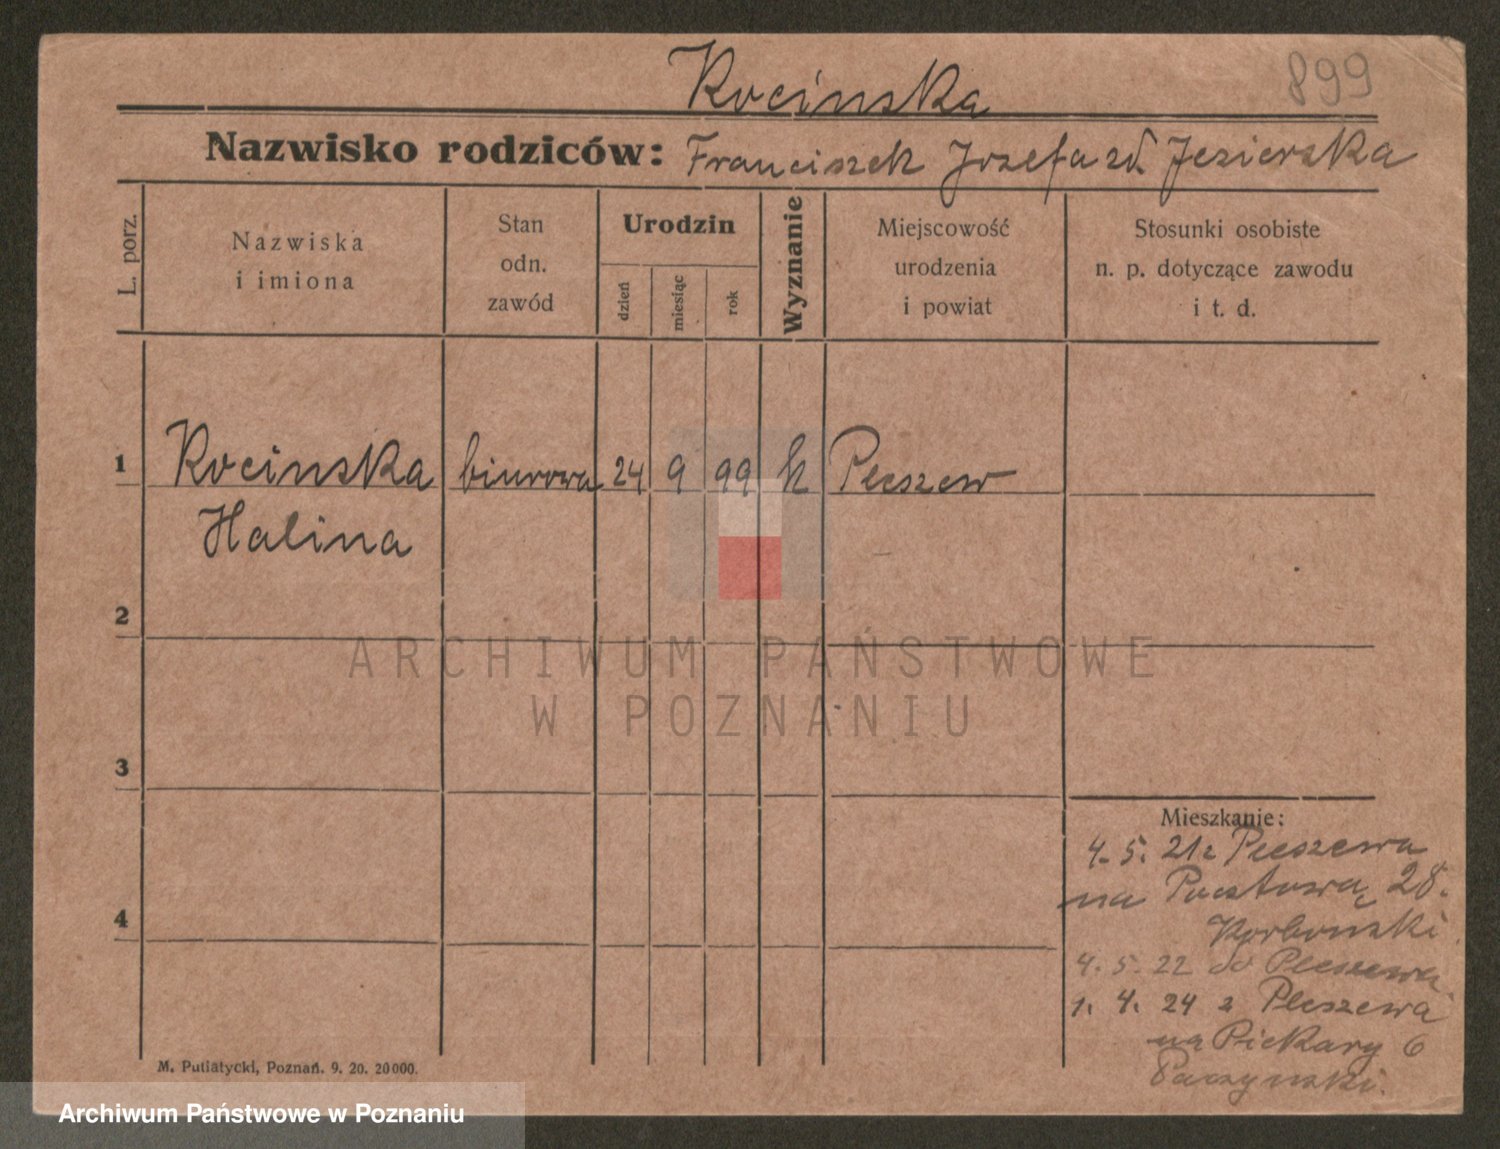 Kocinska
899
Nazwisko rodziców: Franciszek Jozefa zd. Jezierska
L. porz.
Nazwiska
i imiona
Stan
odn.
zawód
Urodzin
dzień
miesiąc
rok
Wyznanie
Miejscowość
urodzenia
i powiat
Stosunki osobiste
n. p. dotyczące zawodu
i t. d.
1 Kocinska biurowa 24 9 99 k Pleszew
Halina
2
ARCHIWUM PAŃSTWOWE
W POZNANIU
3
Mieszkanie:
4. 5. 21 z Pleszewa
na Pocztową 28.
Korbonski.
4
4. 5. 22 do Pleszewa
1. 4. 24 z Pleszewa
na Piekary 6
M. Putiatycki, Poznań. 9. 20. 20000.
Archiwum Państwowe w Poznaniu